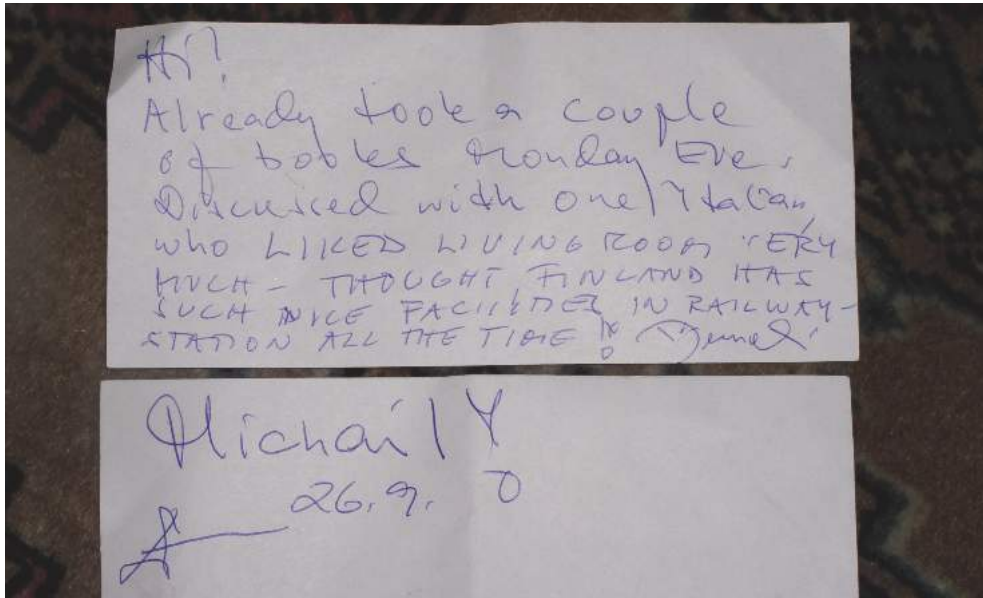 Hi!
Already took a couple
of books Monday Eve.
Discussed with one Italian,
who LIKED LIVING ROOM VERY
MUCH - THOUGHT FINLAND HAS
SUCH NICE FACILITIES IN RAILWAY-
STATION ALL THE TIME !
Michail
26.9.